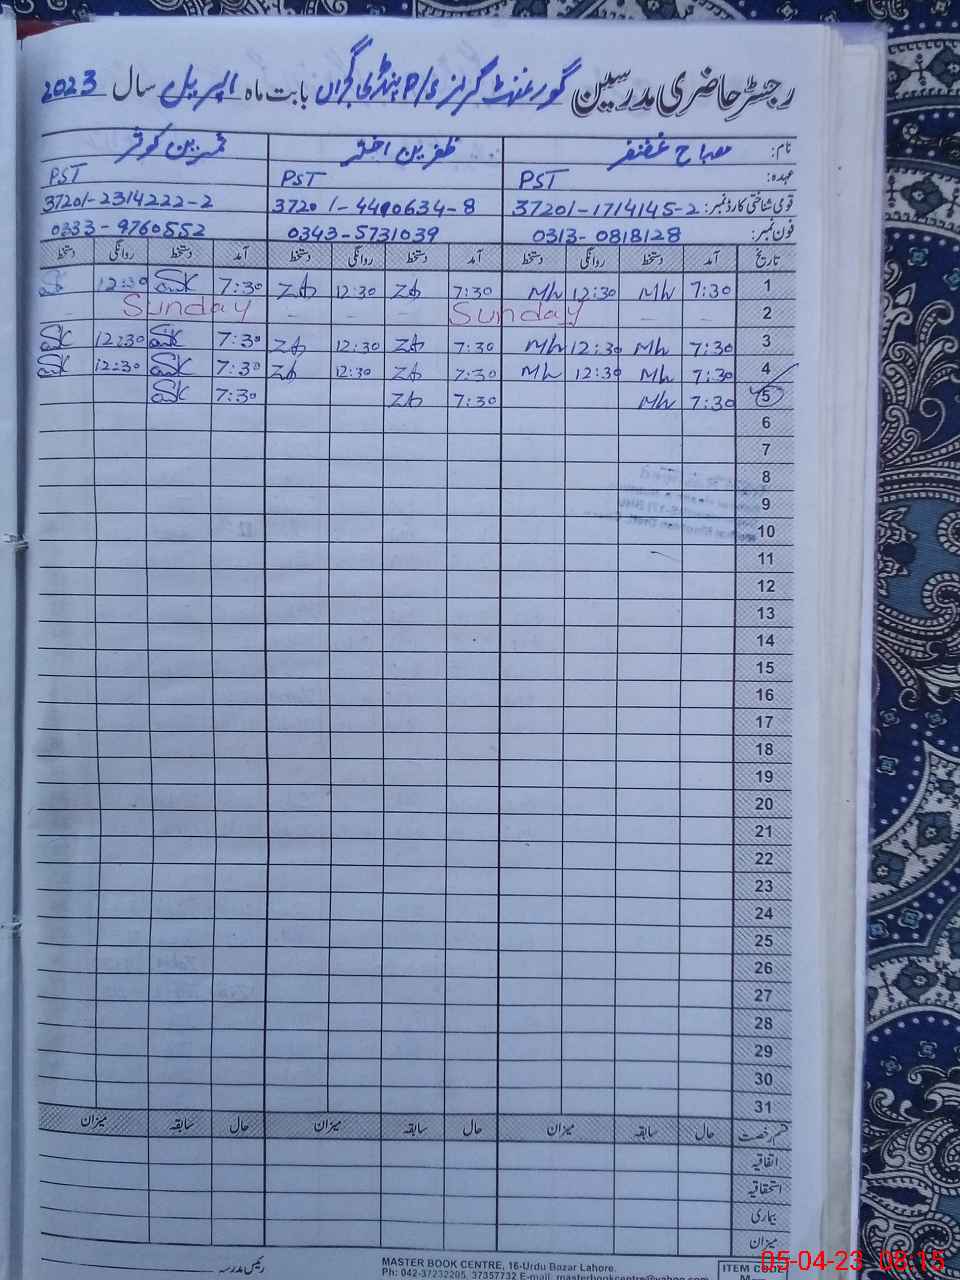 رجسٹر حاضری مدرسین گورنمنٹ گرلز P/S پنڈی گجراں بابت ماہ اپریل سال 2023
نام: صباح غضنفر ظفرین اختر ثمرین کوثر
عہدہ: PST PST PST
قومی شناختی کارڈ نمبر: 37201-1714145-2 37201-4490634-8 37201-2314222-2
فون نمبر: 0313-0818128 0343-5731039 0333-9760552
تاریخ آمد دستخط روانگی دستخط آمد دستخط روانگی دستخط آمد دستخط روانگی دستخط
1 7:30 Mh 12:30 Mh 7:30 ZA 12:30 ZA 7:30 SK 12:30
2 – – Sunday – – – Sunday –
3 7:30 Mh 12:30 Mh 7:30 ZA 12:30 ZA 7:30 SK 12:30 SK
4 7:30 Mh 12:30 Mh 7:30 ZA 12:30 ZA 7:30 SK 12:30 SK
5 7:30 Mh 7:30 ZA 7:30 SK
6
7
8
9
10
11
12
13
14
15
16
17
18
19
20
21
22
23
24
25
26
27
28
29
30
31
قسم رخصت حال سابقہ میزان حال سابقہ میزان حال سابقہ میزان
اتفاقیہ
استحقاقیہ
بیماری
میزان
رئیس مدرسہ
MASTER BOOK CENTRE, 16-Urdu Bazar Lahore.
Ph: 042-37232205, 37357732 E-mail: masterbookcentre@yahoo.com
ITEM CODE
05-04-23 08:15